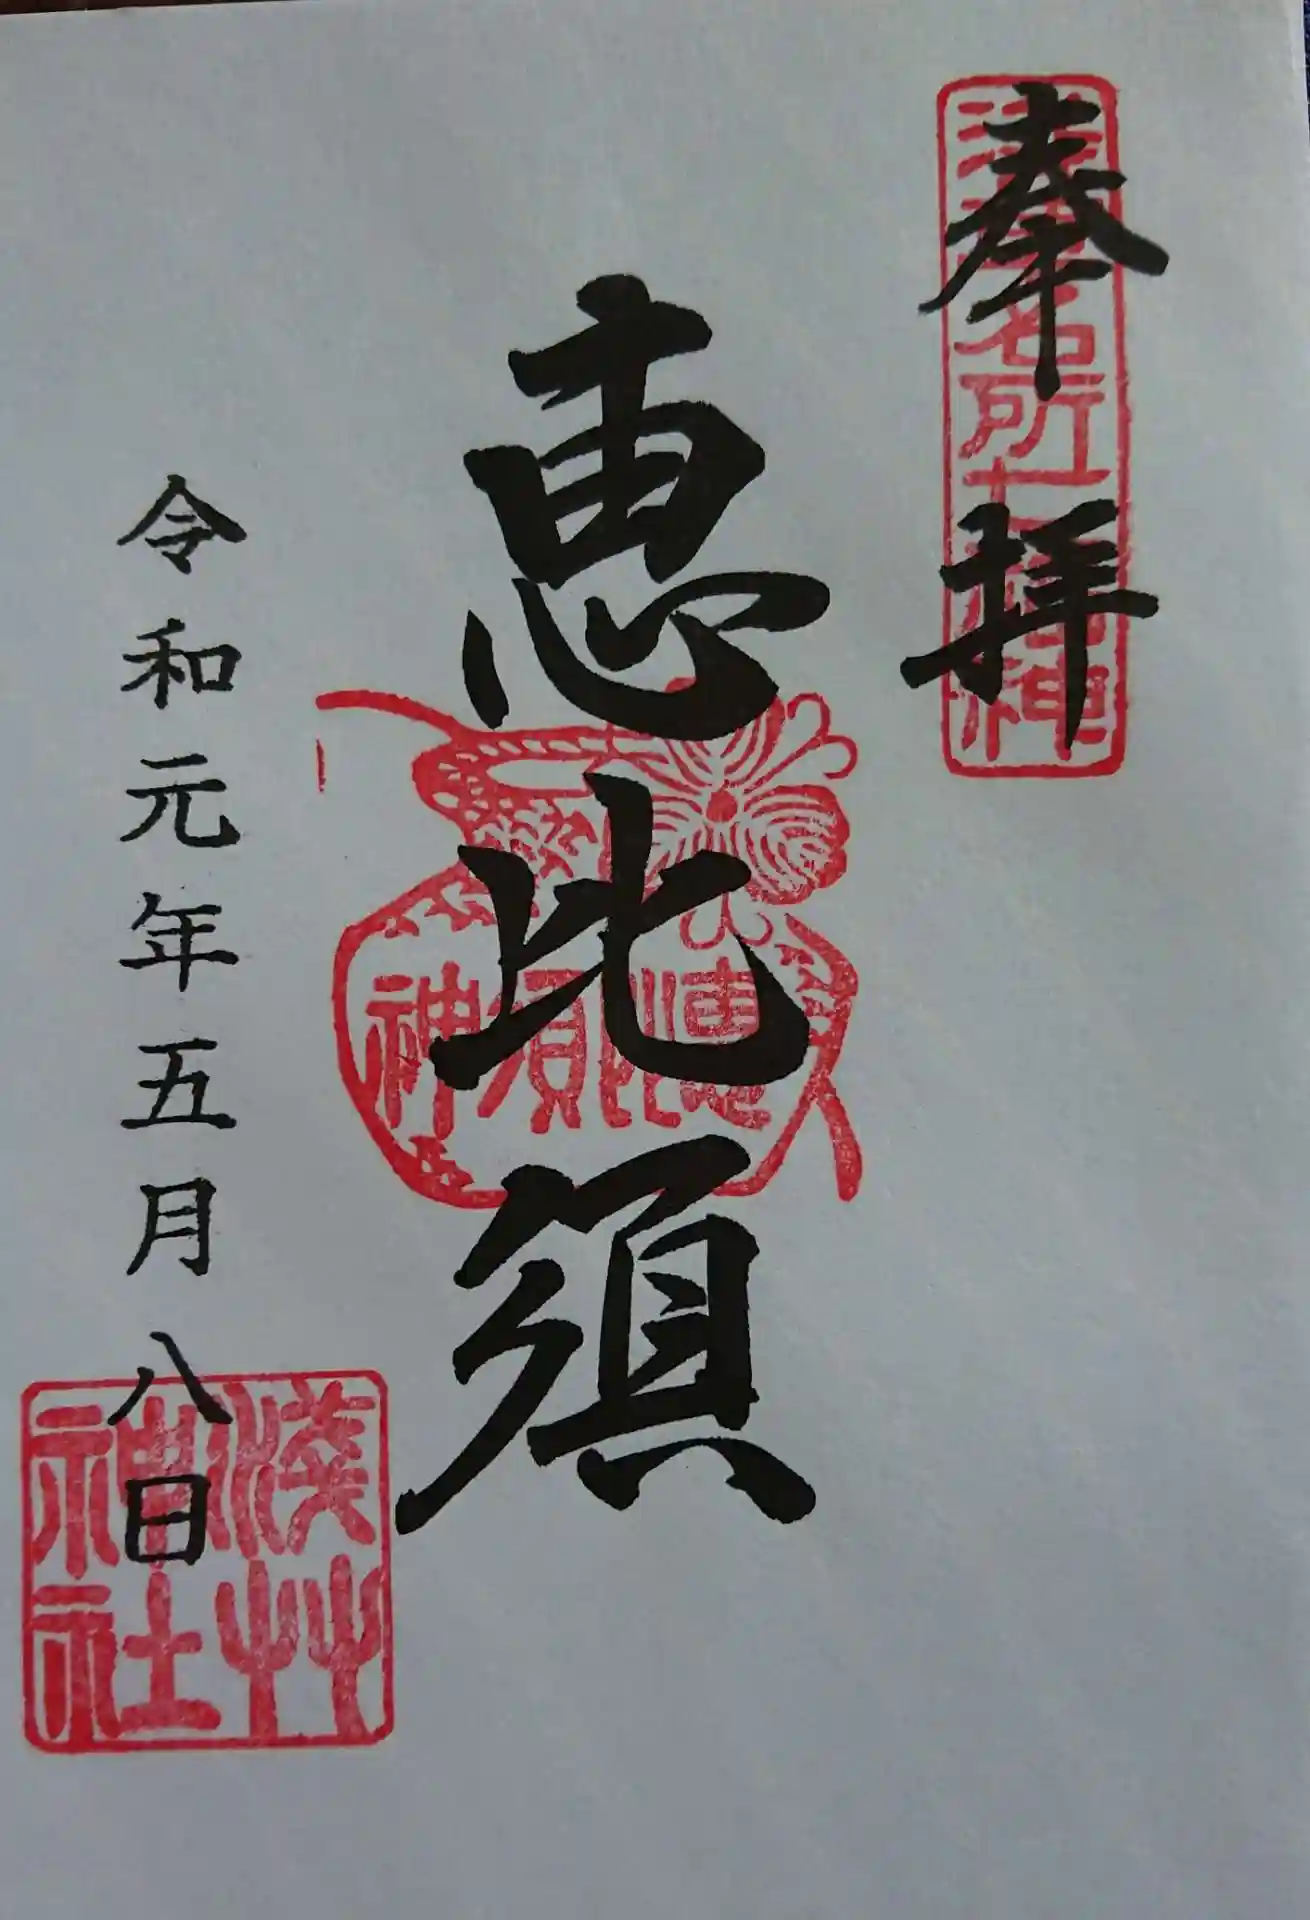 奉拝
浅草名所七福神
恵比須
恵比須神
令和元年五月八日
浅草神社